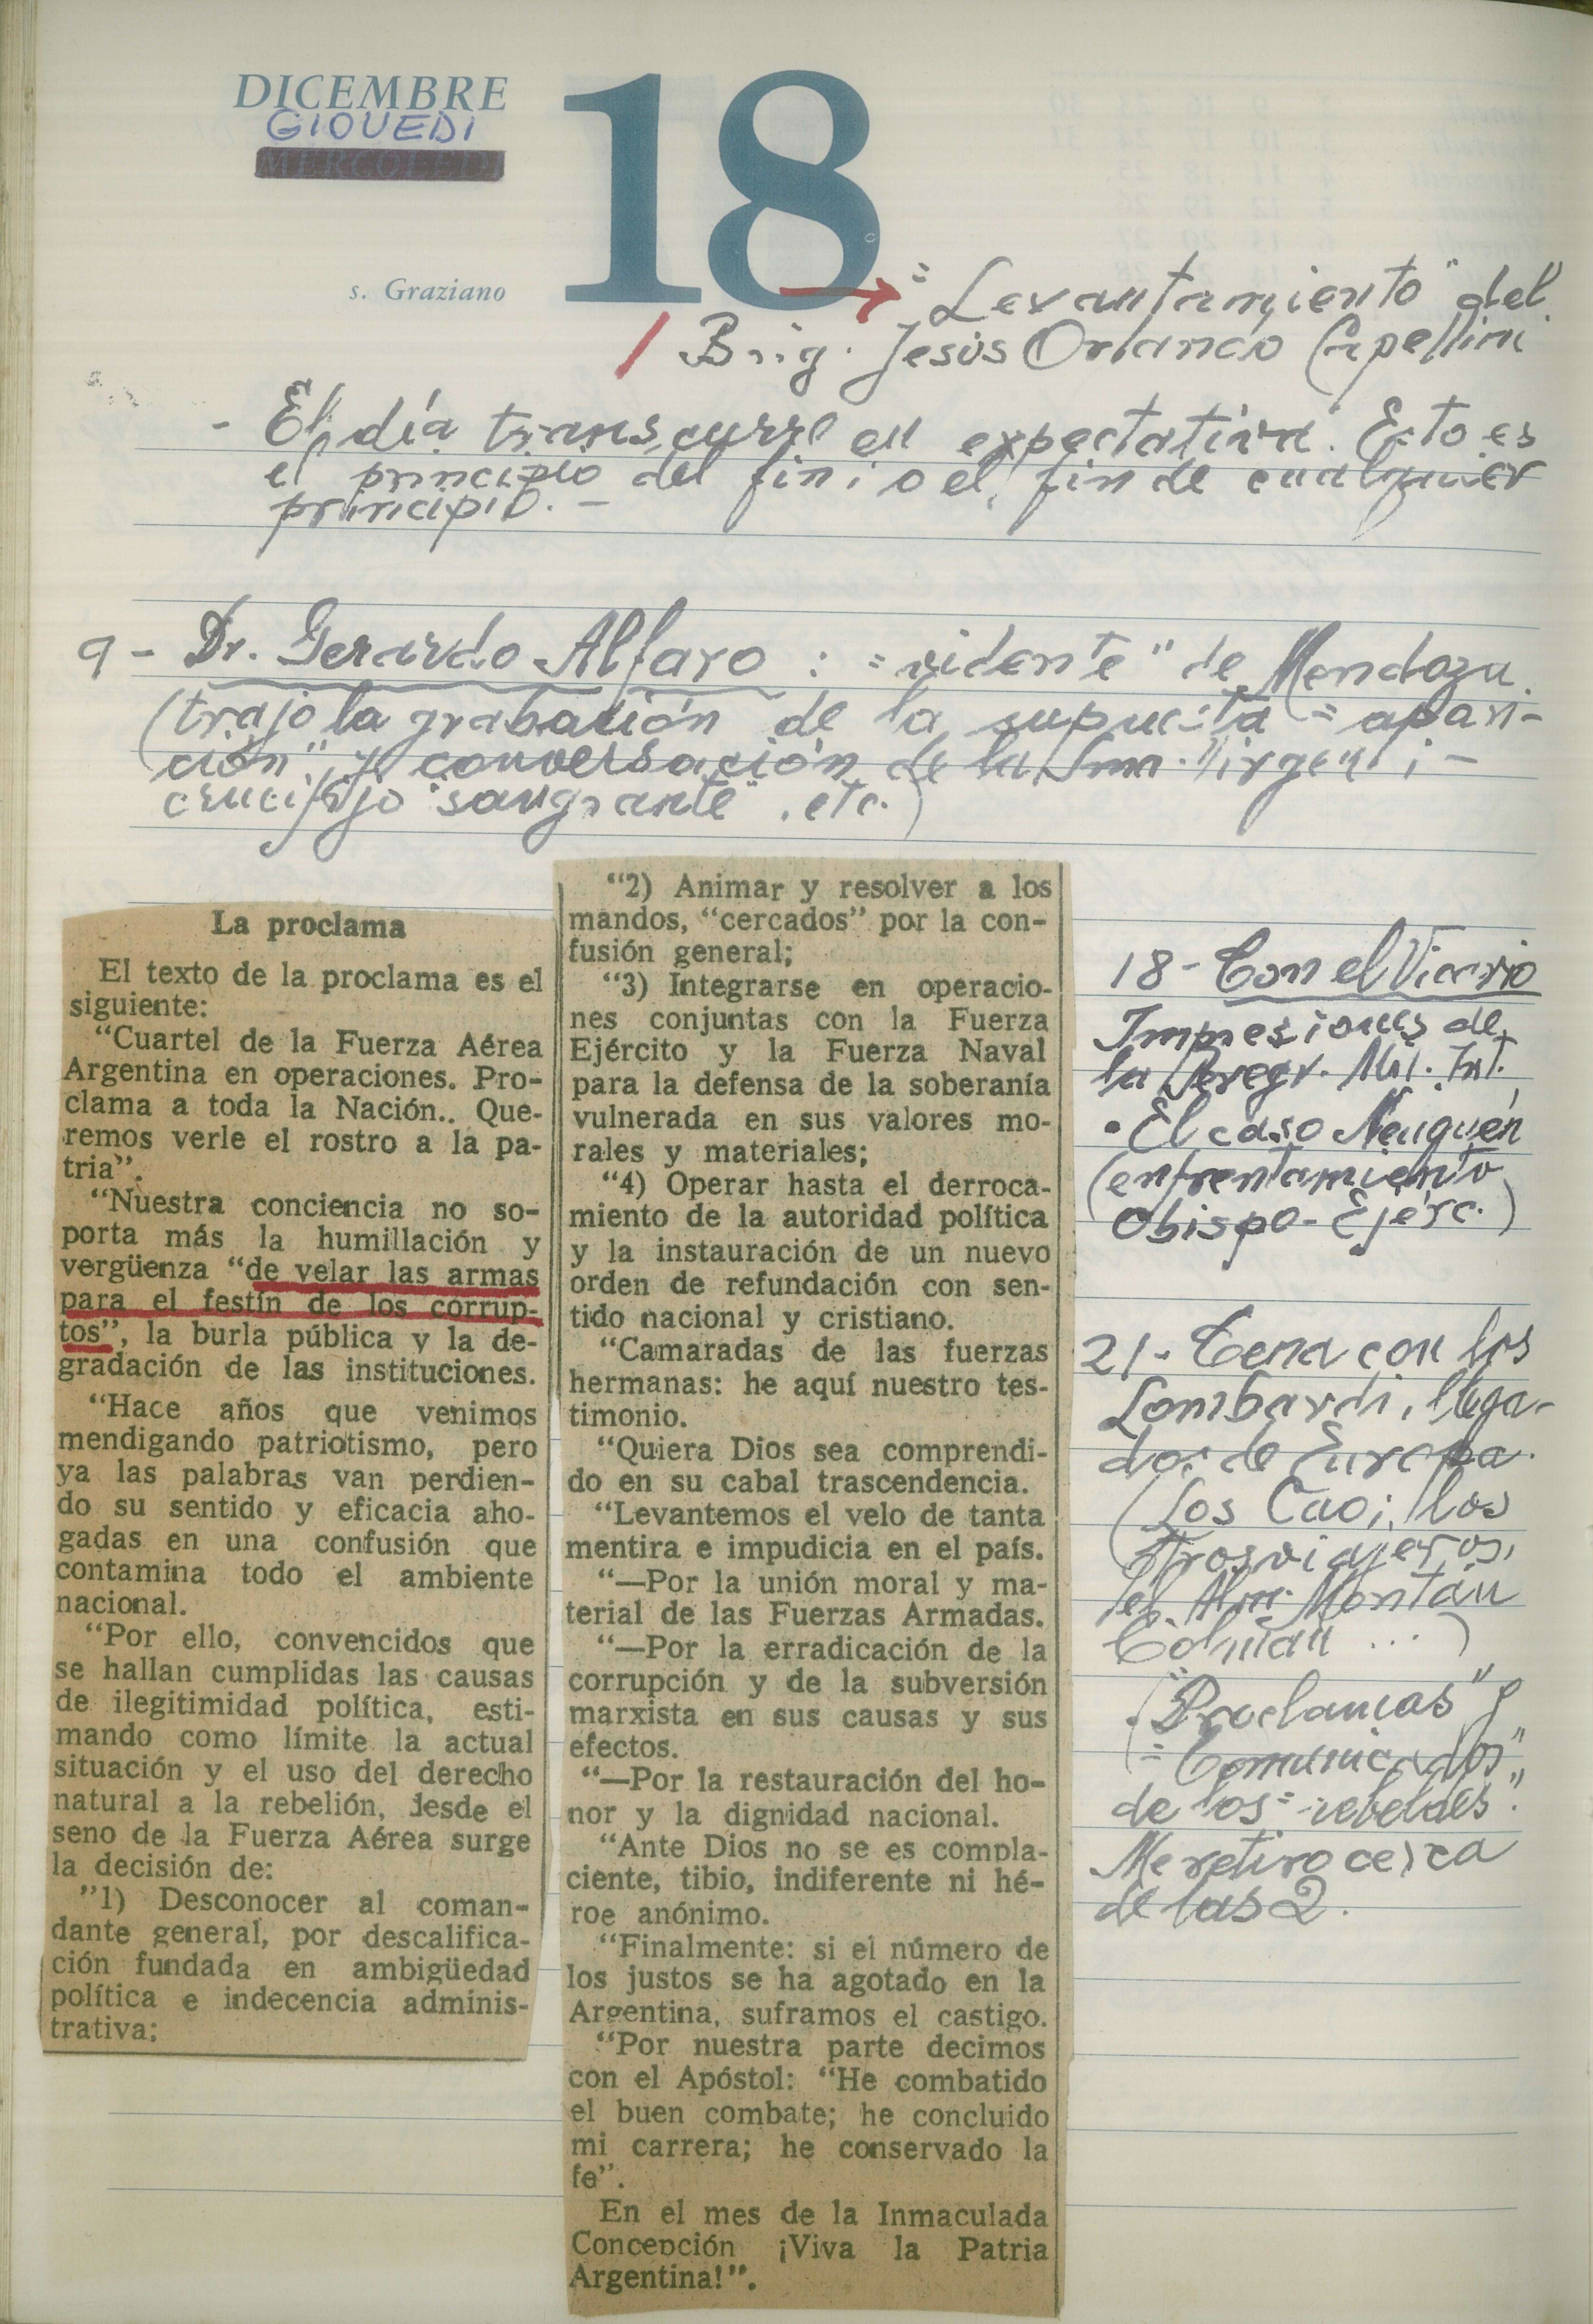 DICEMBRE
GIOVEDI
MERCOLEDI
18
s. Graziano
"Levantamiento" del
Brig. Jesús Orlando Capellini
- El día transcurre en expectativa. Esto es
el principio del fin; o el fin de cualquier
principio. -
9 - Dr. Gerardo Alfaro : "vidente" de Mendoza
(trajo la grabación de la supuesta "apari-
ción" y conversación de la Sma. Virgen ; -
crucifijo "sangrante", etc.)
La proclama
El texto de la proclama es el
siguiente:
"Cuartel de la Fuerza Aérea
Argentina en operaciones. Pro-
clama a toda la Nación.. Que-
remos verle el rostro a la pa-
tria".
"Nuestra conciencia no so-
porta más la humillación y
vergüenza "de velar las armas
para el festín de los corrup-
tos", la burla pública y la de-
gradación de las instituciones.
"Hace años que venimos
mendigando patriotismo, pero
ya las palabras van perdien-
do su sentido y eficacia aho-
gadas en una confusión que
contamina todo el ambiente
nacional.
"Por ello, convencidos que
se hallan cumplidas las causas
de ilegitimidad política, esti-
mando como límite la actual
situación y el uso del derecho
natural a la rebelión, desde el
seno de la Fuerza Aérea surge
la decisión de:
"1) Desconocer al coman-
dante general, por descalifica-
ción fundada en ambigüedad
política e indecencia adminis-
trativa;
"2) Animar y resolver a los
mandos, "cercados" por la con-
fusión general;
"3) Integrarse en operacio-
nes conjuntas con la Fuerza
Ejército y la Fuerza Naval
para la defensa de la soberanía
vulnerada en sus valores mo-
rales y materiales;
"4) Operar hasta el derroca-
miento de la autoridad política
y la instauración de un nuevo
orden de refundación con sen-
tido nacional y cristiano.
"Camaradas de las fuerzas
hermanas: he aquí nuestro tes-
timonio.
"Quiera Dios sea comprendi-
do en su cabal trascendencia.
"Levantemos el velo de tanta
mentira e impudicia en el país.
"—Por la unión moral y ma-
terial de las Fuerzas Armadas.
"—Por la erradicación de la
corrupción y de la subversión
marxista en sus causas y sus
efectos.
"—Por la restauración del ho-
nor y la dignidad nacional.
"Ante Dios no se es compla-
ciente, tibio, indiferente ni hé-
roe anónimo.
"Finalmente: si el número de
los justos se ha agotado en la
Argentina, suframos el castigo.
"Por nuestra parte decimos
con el Apóstol: "He combatido
el buen combate; he concluido
mi carrera; he conservado la
fe".
En el mes de la Inmaculada
Concepción ¡Viva la Patria
Argentina!".
18 - Con el Vicario
Impresiones de
la Peregr. Mil. Int.
• El caso Neuquén
(enfrentamiento
Obispo - Ejérc.)
21 - Cena con los
Lombardi, llega-
dos de Europa.
(Los Cao; los
otros viajeros,
el Alm. Montán
Colman ...)
. "Proclamas" y
"Comunicados"
de los "rebeldes".
Me retiro cerca
de las 2.